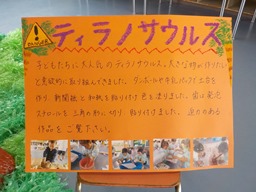 ティラノサウルス
子どもたちに大人気のティラノサウルス。大きな物が作りたい
と意欲的に取り組んできました。ダンボールや牛乳パックで土台を
作り、新聞紙と和紙を貼り付け色を塗りました。歯は発泡
スチロールを三角の形に切り、貼り付けました。迫力のある
作品をご覧下さい。